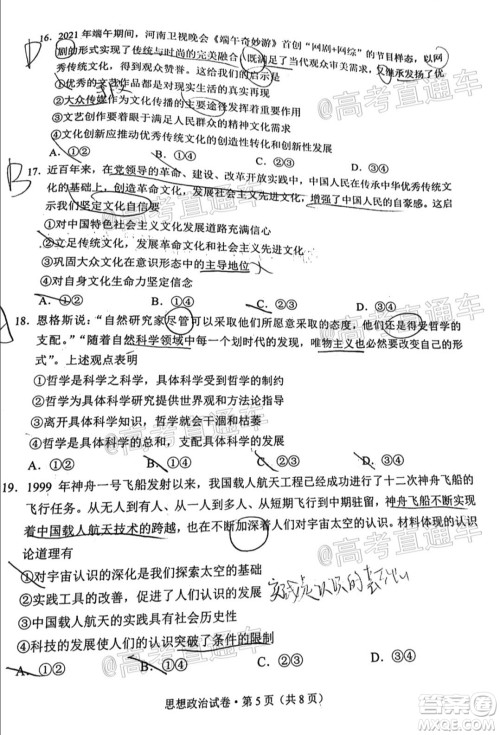 D
16. 2021 年端午期间，河南卫视晚会《端午奇妙游》首创“网剧+网综”的节目样态，以网
剧的形式实现了传统与时尚的完美融合，既满足了当代观众审美需求，又继承发扬了优
秀传统文化，得到观众赞誉。这给我们的启示是
①优秀的文艺作品总是对现实生活的真实再现
②大众传媒作为文化传播的主要途径发挥重要作用
③文艺创作要着眼于满足广大群众的精神文化需求
④文化创新应推动优秀传统文化的创新性发展
A．①② B．①④ C．②③ D．③④
B
17. 近百年来，在党领导的革命、建设、改革开放实践中，中国人民在传承中华优秀传统文
化的基础上，创造革命文化，发展社会主义先进文化，增强了中国人民的自豪感。这启
示我们坚定文化自信要
①对中国特色社会主义发展道路充满信心
②立足传统文化，发展革命文化和社会主义先进文化
③巩固大众文化在意识形态中的主导地位
④对自身文化生命力坚定信念
A．①② B．①④ C．②③ D．③④
18. 恩格斯说：“自然研究家尽管可以采取他们所愿意采取的态度，他们还是得受哲学的
支配。”“随着自然科学领域中每一个划时代的发现，唯物主义也必然要改变自己的
形式。”上述观点表明
①哲学是科学之科学，具体科学受到哲学的制约
②哲学为具体科学研究提供世界观和方法论指导
③离开具体科学的发展，哲学就会干涸和枯萎
④哲学是具体科学的总和，支配具体科学的发展
A．①② B．①④ C．②③ D．③④
19. 1999 年神舟一号飞船发射以来，我国载人航天工程已经成功进行了十二次神舟飞船的
飞行任务。从无人到有人、从一人到多人、从短期飞行到中期驻留，神舟飞船不断实现
着中国载人航天技术的跨越，也在不断加深着人们对宇宙的认识。材料体现的认识
论道理有
①对宇宙认识的深化是我们探索太空的基础
实践是认识的基础
②实践工具的改善，促进了人类认识的发展
③中国载人航天实践具有社会历史性
④科技的发展使人们的认识突破了条件的限制
A．①② B．①④ C．②③ D．③④
思想政治试卷·第 5 页（共 8 页）
@高考直通车
@高考直通车
@高考直通车
@高考直通车